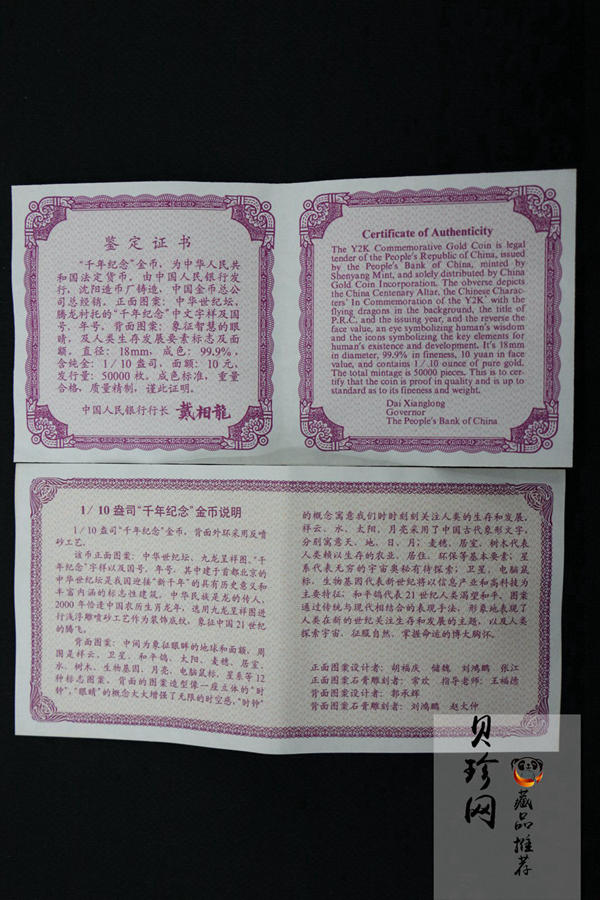 鉴定证书
“千年纪念”金币，为中华人民共
和国法定货币。由中国人民银行发
行，沈阳造币厂铸造，中国金币总公
公司总经销。正面图案：中华世纪坛，
腾龙衬托的“千年纪念”中文字样及国
号、年号。背面图案：象征智慧的眼
睛，及人类生存发展要素标志及面
额。直径：18mm，成色：99.9%，
含纯金：1/10盎司，面额：10元，
发行量：50000枚。成色标准，重量
合格，质量精制，谨此证明。
中国人民银行行长 戴相龍
Certificate of Authenticity
The Y2K Commemorative Gold Coin is legal
tender of the People's Republic of China, issued
by the People's Bank of China, minted by
Shenyang Mint, and solely distributed by China
Gold Coin Incorporation. The obverse depicts
the China Centenary Altar, the Chinese Charac-
ters 'In Commemoration of the Y2K' with the
flying dragons in the background, the title of
P.R.C. and the issuing year, and the reverse the
face value, an eye symbolizing human's wisdom
and the icons symbolizing the key elements for
human's existence and development. It's 18mm
in diameter, 99.9% in fineness, 10 yuan in face
value, and contains 1/10 ounce of pure gold.
The total mintage is 50000 pieces. This is to cer-
tify that the coin is proof in quality and is up to
standard as to its fineness and weight.
Dai Xianglong
Governor
The People's Bank of China
1/10盎司“千年纪念”金币说明
1/10盎司“千年纪念”金币，背面外环采用反喷
砂工艺。
该币正面图案：中华世纪坛、九龙呈祥图、“千
年纪念”字样以及国号、年号。其中建于首都北京的
中华世纪坛是我国迎接“新千年”的具有历史意义和
丰富内涵的标志性建筑。中华民族是龙的传人，
2000年恰逢中国农历生肖龙年，选用九龙呈祥图进
行浅浮雕喷砂工艺作为装饰底纹，象征中国21世纪
的腾飞。
背面图案：中间为象征眼眸的地球和面额，周
围是祥云、卫星、和平鸽、太阳、麦穗、居室、
水、树木、生物基因、月亮、电脑鼠标、星系等12
种标志图案。背面的图案造型像一座立体的“时
钟”，“眼睛”的概念大大增强了无限的时空感，“时钟”
的概念寓意我们时时刻刻关注人类的生存和发展，
祥云、水、太阳、月亮采用了中国古代象形文字，
分别寓意天、地、日、月；麦穗、居室、树木代表
人类赖以生存的农业、居住、环保等基本要素；星
系代表无穷的宇宙奥秘有待探索；卫星、电脑鼠
标、生物基因代表新世纪将以信息产业和高科技为
主要特征；和平鸽代表21世纪人类渴望和平。图案
通过传统与现代相结合的表现手法，形象地表现了
人类在新的世纪关注生存与发展的主题，以及人类
探索宇宙、征服自然、掌握命运的博大胸怀。
正面图案设计者：胡福庆 储魏 刘鸿鹏 张江
正面图案石膏雕刻者：常欢 指导老师：王福德
背面图案设计者：郭承辉
背面图案石膏雕刻者：刘鸿鹏 赵大仲
贝珍网
藏品推荐